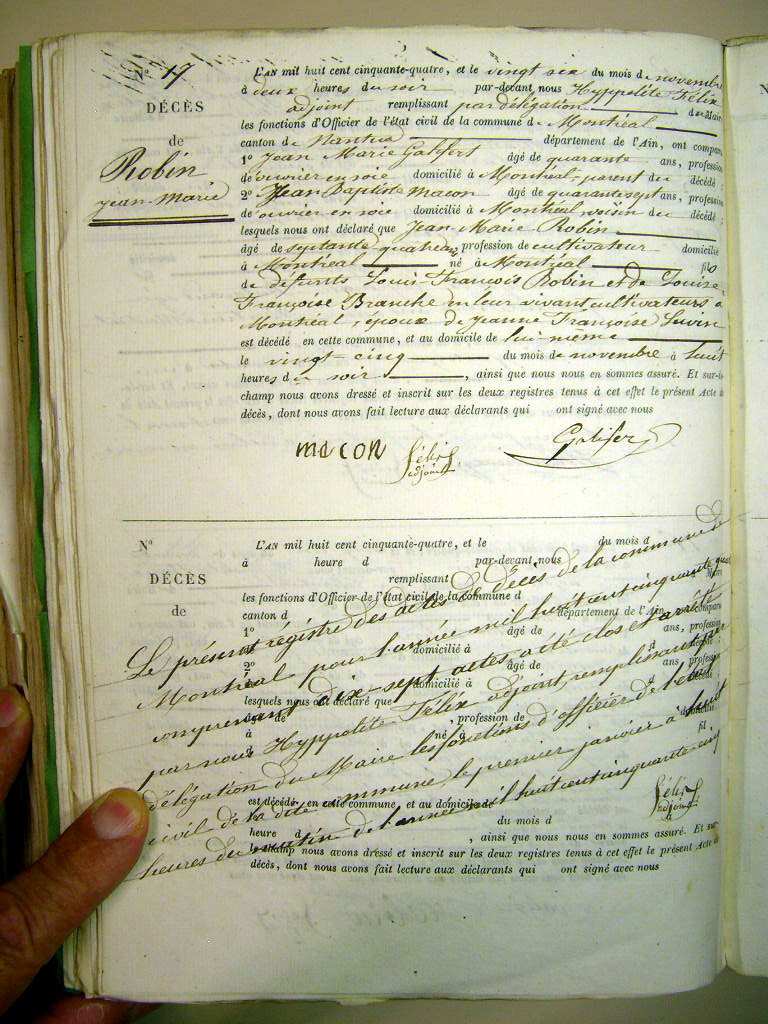 N° 17
DÉCÈS
de
Robin
Jean-Marie
L'AN mil huit cent cinquante-quatre, et le vingt six du mois de novembre
à deux heures du soir par-devant nous Hyppolite Félix
adjoint remplissant par délégation du Maire
les fonctions d'Officier de l'état civil de la commune de Montréal
canton de Nantua département de l'Ain, ont comparu
1° Jean Marie Galifert âgé de quarante ans, profession
de ouvrier en soie domicilié à Montréal parent du décédé
2° Jean Baptiste Macon âgé de quarante sept ans, profession
de ouvrier en soie domicilié à Montréal voisin du décédé
lesquels nous ont déclaré que Jean-Marie Robin
âgé de septante quatre ans, profession de cultivateur domicilié
à Montréal né à Montréal fils
de défunts Louis-François Robin et de Louise
Françoise Branche en leur vivant cultivateurs à
Montréal, époux de Jeanne Françoise
est décédé en cette commune, et au domicile de lui-même
le vingt-cinq du mois de novembre à huit
heures du soir, ainsi que nous nous en sommes assuré. Et sur-le-
champ nous avons dressé et inscrit sur les deux registres tenus à cet effet le présent Acte de
décès, dont nous avons fait lecture aux déclarants qui ont signé avec nous
macon Félix adjoint Galifer
N°
DÉCÈS
de
L'AN mil huit cent cinquante-quatre, et le du mois d
à heure d par-devant nous
remplissant
les fonctions d'Officier de l'état civil de la commune d
canton d département de l'Ain, ont comparu
1° âgé de ans, profession
d domicilié à d décédé
2° âgé de ans, profession
domicilié à décédé
lesquels nous ont déclaré que
âgé de, profession de domicilié
à né à fil
d
est décédé en cette commune, et au domicile de
le du mois d
heure d, ainsi que nous nous en sommes assuré. Et sur-
le-champ nous avons dressé et inscrit sur les deux registres tenus à cet effet le présent Acte de
décès, dont nous avons fait lecture aux déclarants qui ont signé avec nous
Le présent régistre des actes de décès de la commune de
Montréal pour l'année mil huit cent cinquante quatre
comprenant dix-sept actes a été clos et arrêté
par nous Hyppolite Félix adjoint, remplissant par
délégation du Maire les fonctions d'officier de l'état
civil de la dite commune le premier janvier à huit
heures du matin de l'année mil huit cent cinquante cinq
Félix adjoint